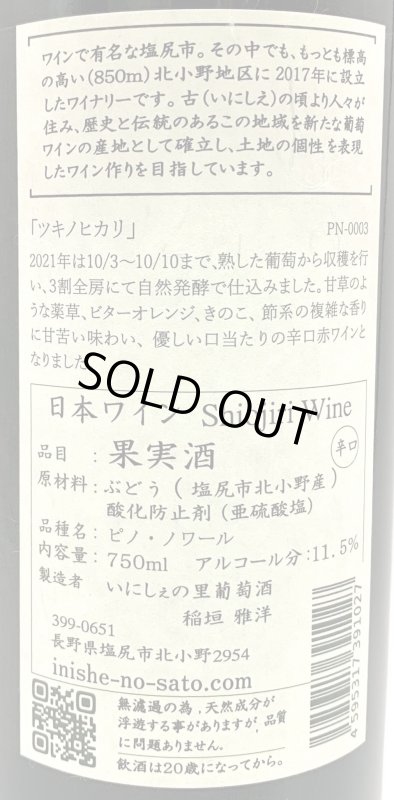 ワインで有名な塩尻市。その中でも、もっとも標高
の高い(850m)北小野地区に2017年に設立
したワイナリーです。古(いにしえ)の頃より人々が
住み、歴史と伝統のあるこの地域を新たな葡萄
ワインの産地として確立し、土地の個性を表現
したワイン作りを目指しています。
「ツキノヒカリ」 PN-0003
2021年は10/3〜10/10まで、熟した葡萄から収穫を行
い、3割全房にて自然発酵で仕込みました。甘草のよ
うな薬草、ビターオレンジ、きのこ、節系の複雑な香り
に甘苦い味わい、優しい口当たりの辛口赤ワインと
なりました
SOLD OUT
日本ワイン Shiojiri Wine
品目 : 果実酒 辛口
原材料 : ぶどう(塩尻市北小野産)
酸化防止剤(亜硫酸塩)
品種名 : ピノ・ノワール
内容量 : 750ml アルコール分:11.5%
製造者 いにしぇの里葡萄酒
稲垣 雅洋
399-0651
長野県塩尻市北小野2954
inishe-no-sato.com
無濾過の為、天然成分が
浮遊する事がありますが、品質
に問題ありません。
飲酒は20歳になってから。
4 595317 391027